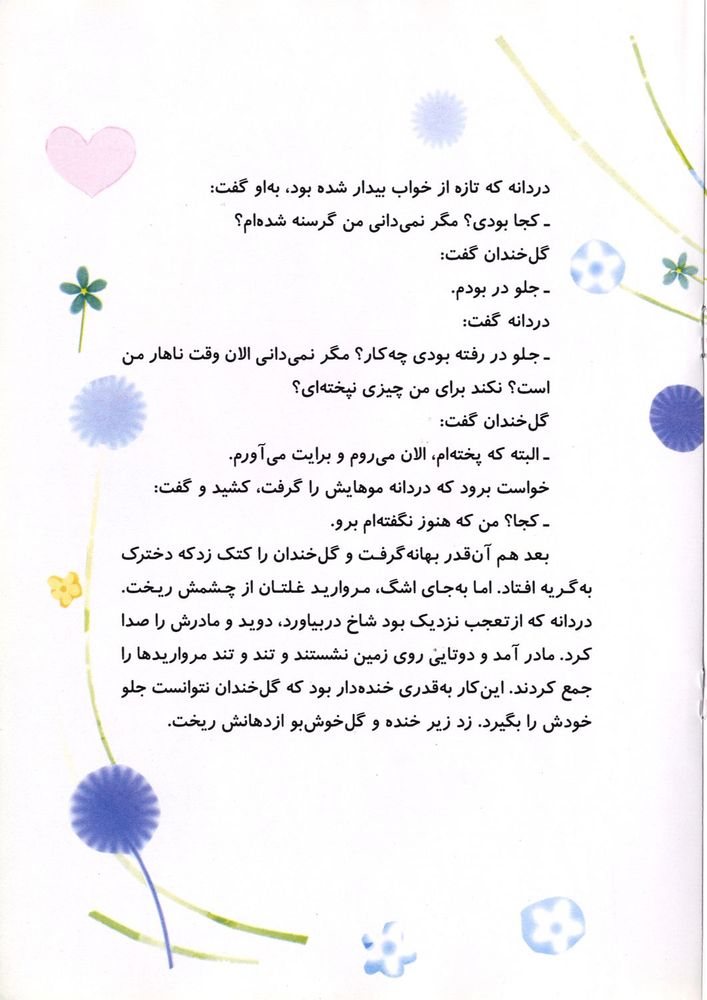 دردانه که تازه از خواب بیدار شده بود، به‌او گفت:
ـ کجا بودی؟ مگر نمی‌دانی من گرسنه شده‌ام؟
گل‌خندان گفت:
ـ جلو در بودم.
دردانه گفت:
ـ جلو در رفته بودی چه‌کار؟ مگر نمی‌دانی الان وقت ناهار من
است؟ نکند برای من چیزی نپخته‌ای؟
گل‌خندان گفت:
ـ البته که پخته‌ام، الان می‌روم و برایت می‌آورم.
خواست برود که دردانه موهایش را گرفت، کشید و گفت:
ـ کجا؟ من که هنوز نگفته‌ام برو.
بعد هم آن‌قدر بهانه‌گرفت و گل‌خندان را کتک زدکه دخترک
به‌گریه افتاد. اما به‌جای اشگ، مروارید غلتان از چشمش ریخت.
دردانه که ازتعجب نزدیک بود شاخ دربیاورد، دوید و مادرش را صدا
کرد. مادر آمد و دوتایی روی زمین نشستند و تند و تند مرواریدها را
جمع کردند. این‌کار به‌قدری خنده‌دار بود که گل‌خندان نتوانست جلو
خودش را بگیرد. زد زیر خنده و گل‌خوش‌بو ازدهانش ریخت.